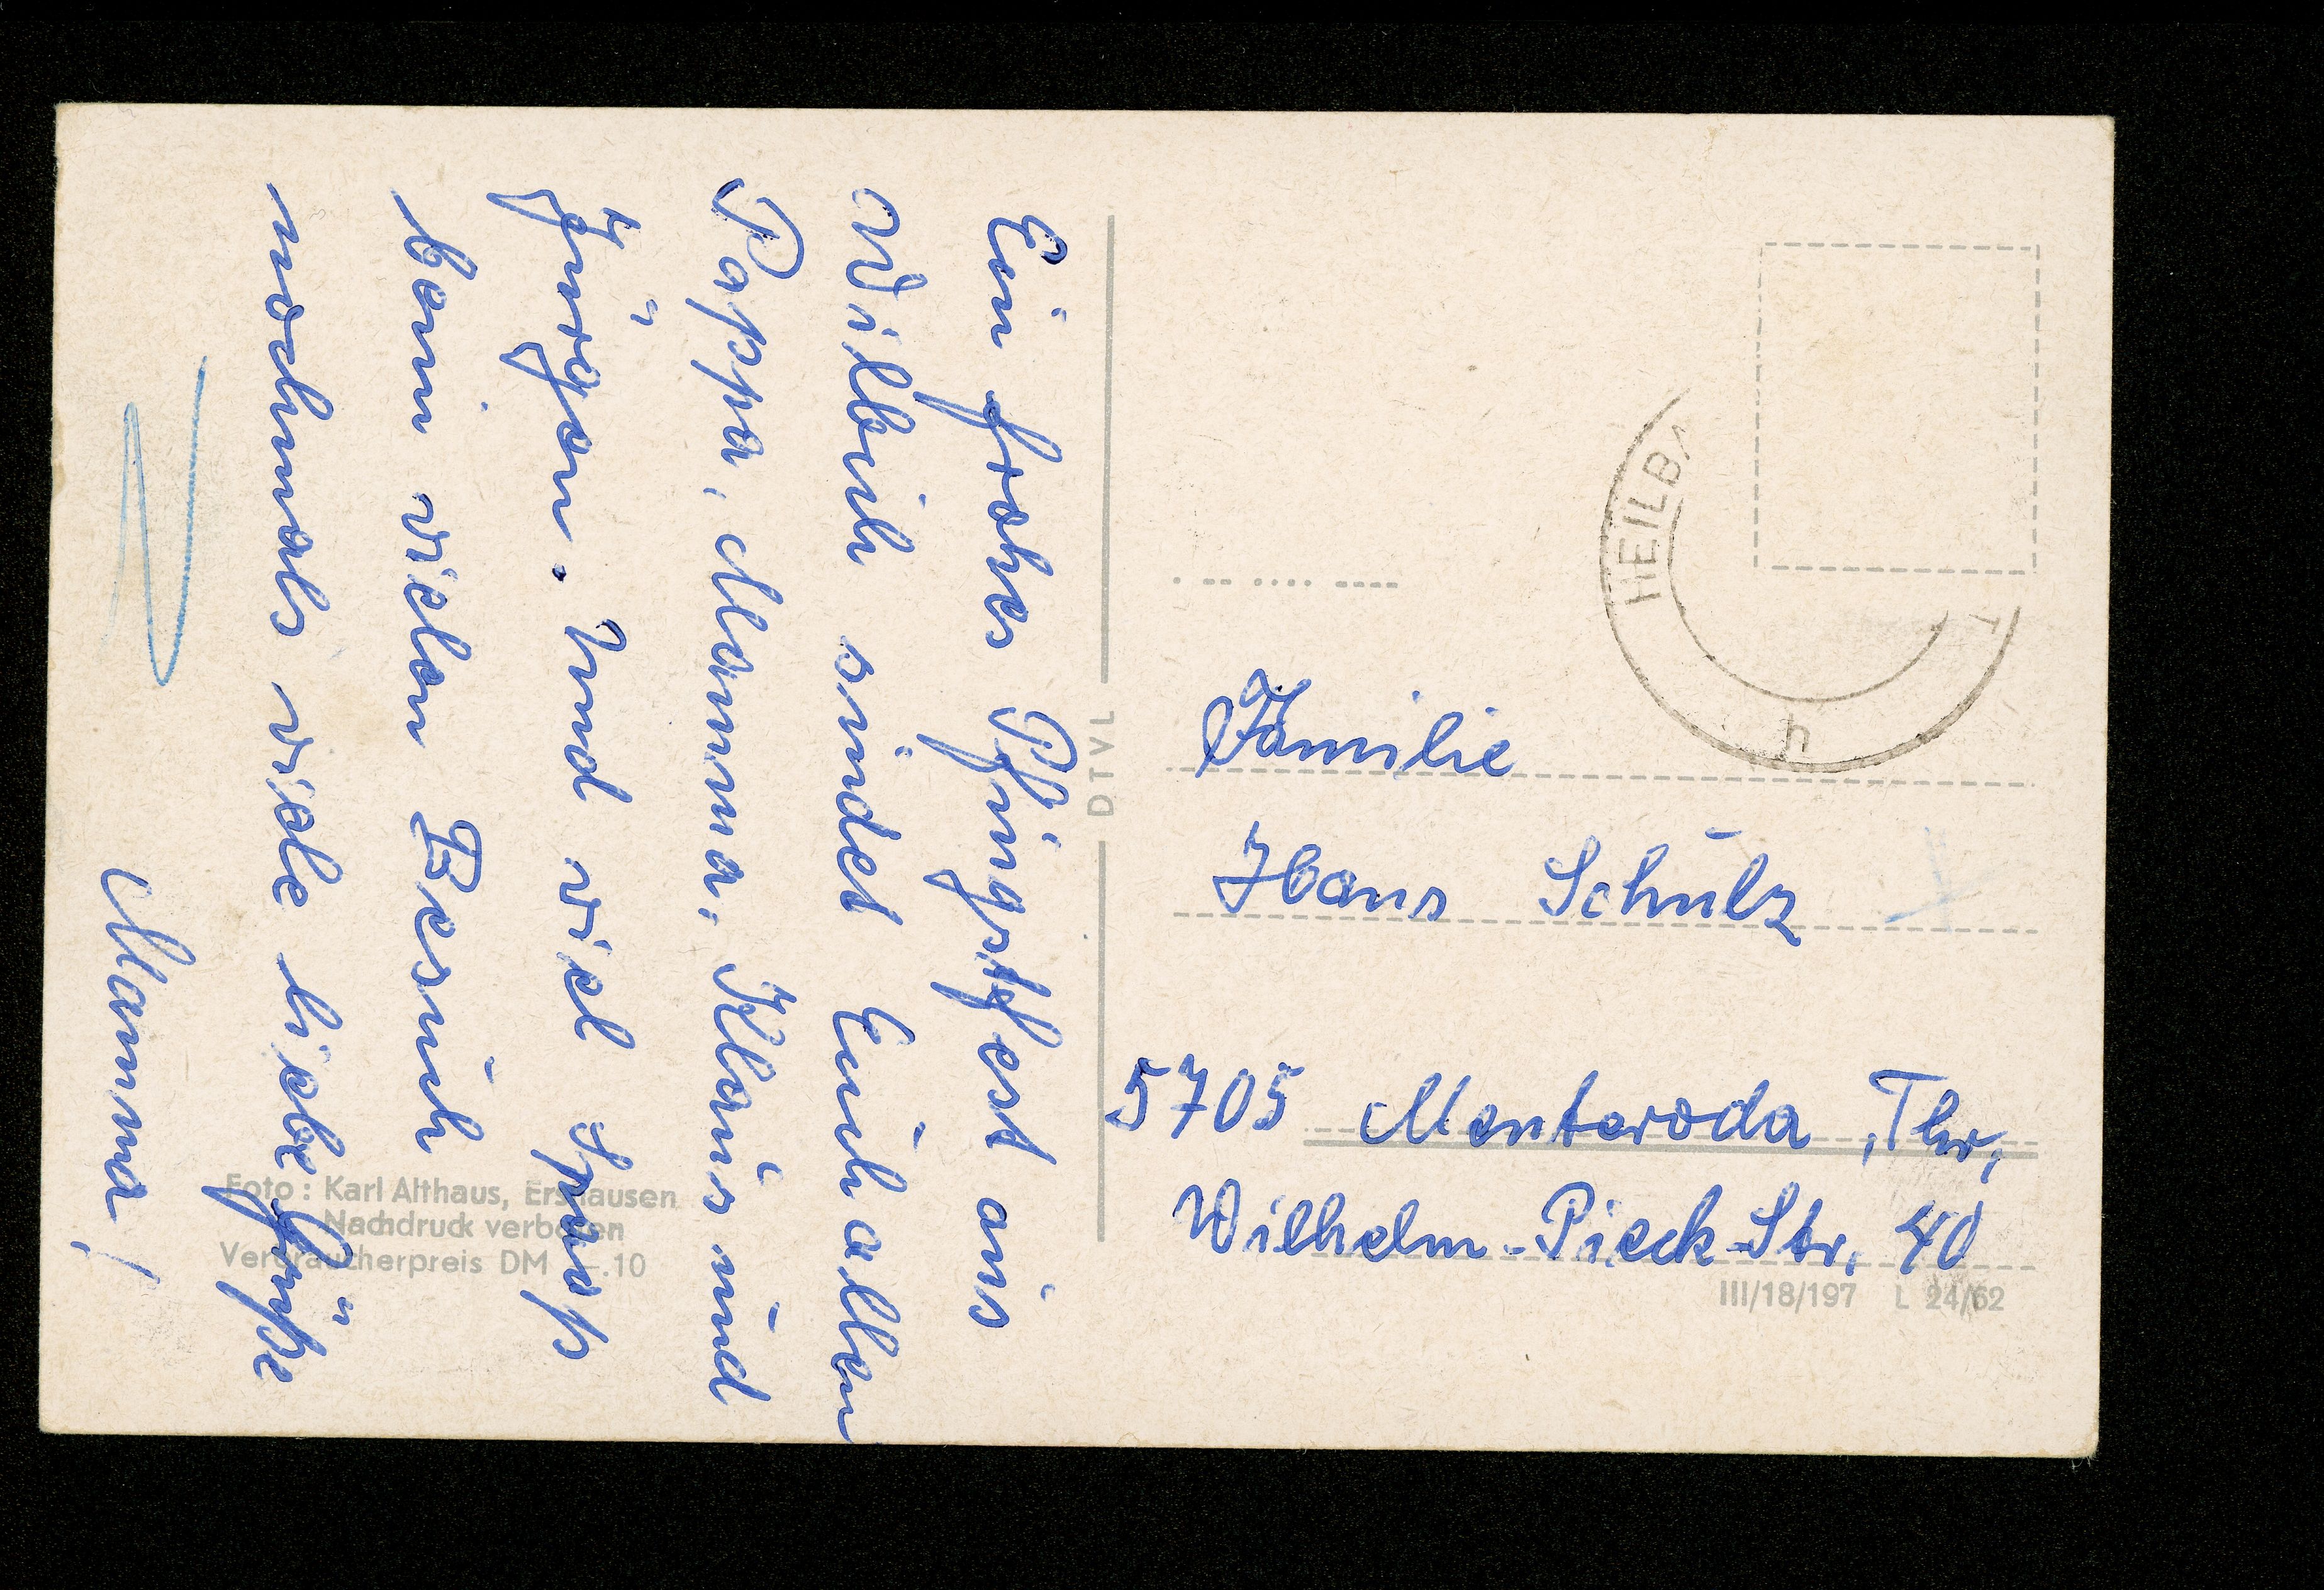 Ein frohes Pfingstfest aus
Wilbich sindet Euch allen
Pappa, Mamma, Klaus und
Jürgen. Und viel Spaß
beim vielen Besuch
nochmals viele liebe Grüße
Mamma!
Foto: Karl Althaus, Ershausen
Nachdruck verboten
Verbraucherpreis DM —.10
DTVL
HEILB
Familie
Hans Schulz
5705 Menteroda, Thr.
Wilhelm-Pieck-Str. 40
III/18/197 L 24/62